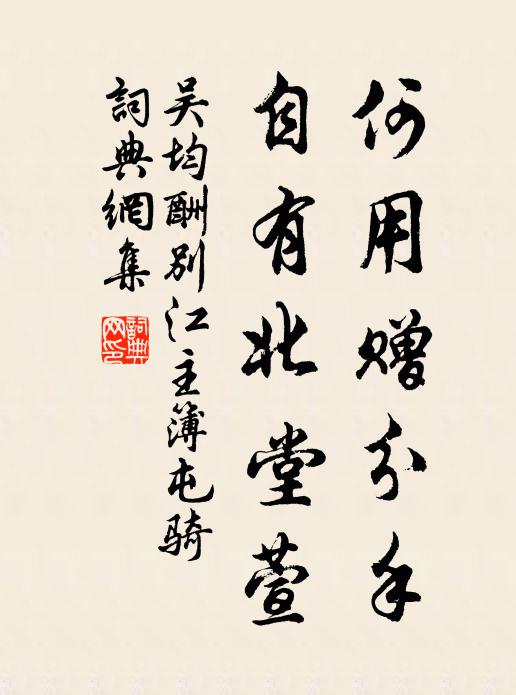 何用贈分手
自有北堂萱
吳均酬別江主簿屯騎
詞典網集
詞典网印